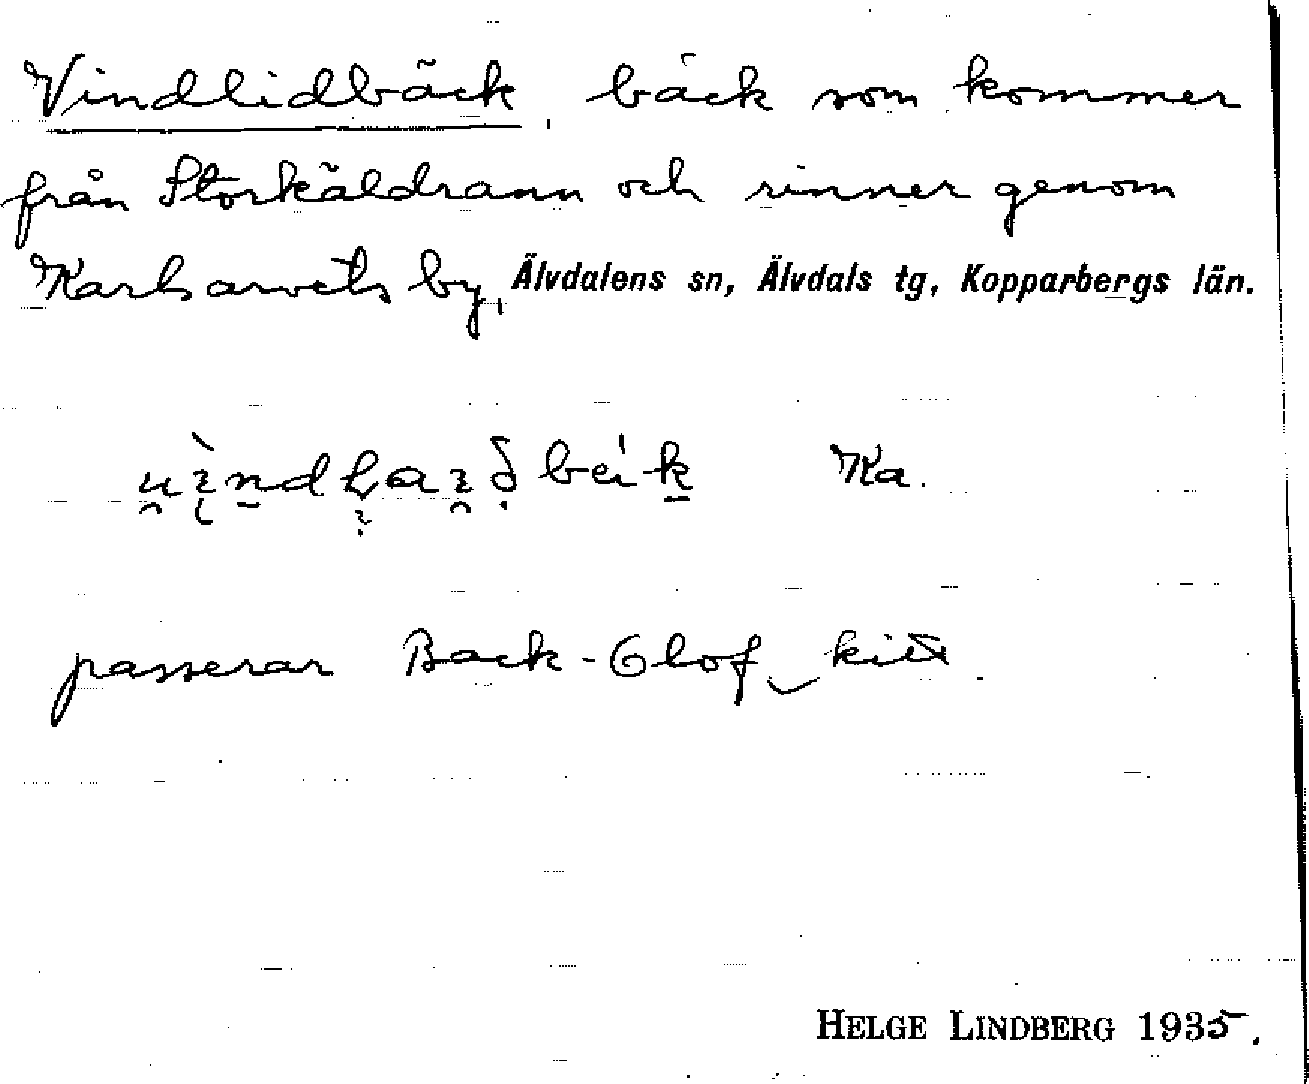 Vindlidbäck, bäck som kommer
från Storkäldrann och rinner genom
Karlsarvets by, Älvdalens sn, Älvdals tg, Kopparbergs län.
Ka.
passerar Back-Olof
HELGE LINDBERG 1935.